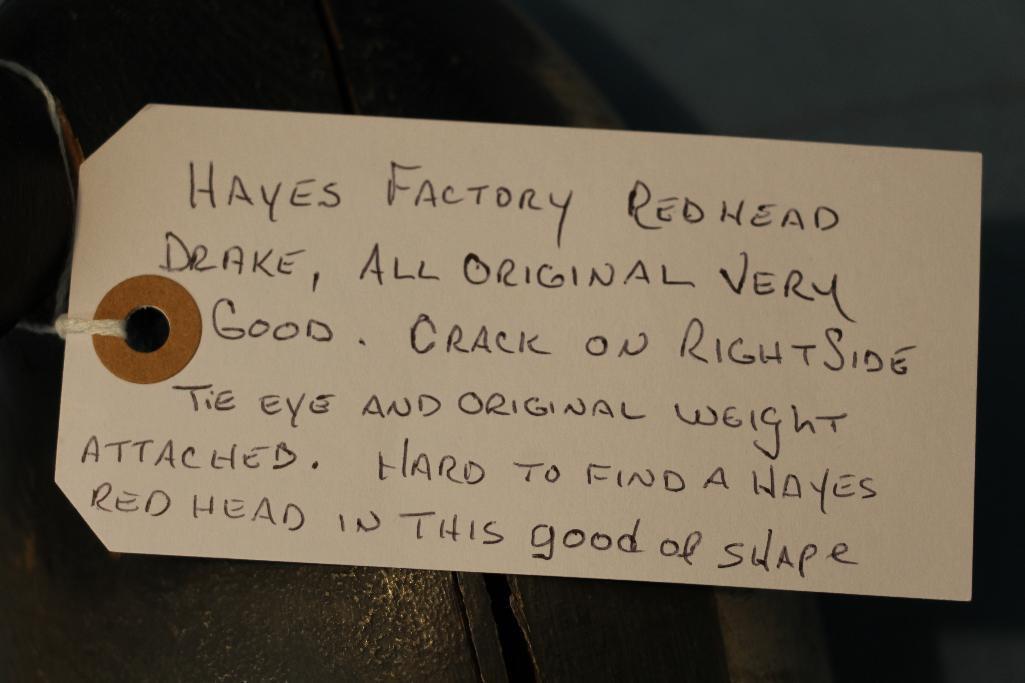 HAYES FACTORY REDHEAD
DRAKE, ALL ORIGINAL VERY
GOOD. CRACK ON RIGHT SIDE
TIE EYE AND ORIGINAL WEIGHT
ATTACHED. HARD TO FIND A HAYES
RED HEAD IN THIS good of SHAPE